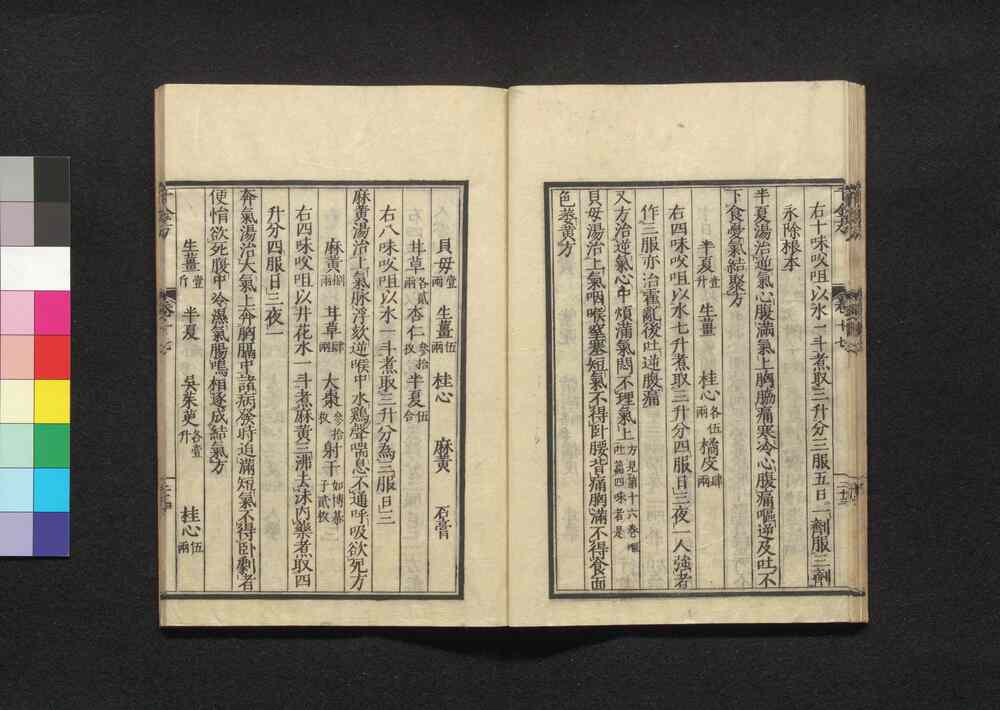 右十味㕮咀以水一斗煮取三升分三服五日一劑服三劑
永除根本
半夏湯治逆氣心腹滿氣上胸脇痛寒冷心腹痛嘔逆及吐不
下食憂氣結聚方
半夏壹升 生薑 桂心各伍兩 橘皮肆兩
右四味㕮咀以水七升煮取三升分四服日三夜一人強者
作三服亦治霍亂後吐逆腹痛
又方治逆氣心中煩滿氣悶不理氣上方見第十六卷嘔吐篇四味者是
貝母湯治上氣咽喉窒塞短氣不得卧腰背痛胸滿不得食面
色萎黃方
貝母壹兩 生薑伍兩 桂心 麻黃 石膏
甘草各貳兩 杏仁叁拾枚 半夏伍合
右八味㕮咀以水一斗煮取三升分為三服日三
麻黃湯治上氣脉浮欬逆喉中水鷄聲喘息不通呼吸欲死方
麻黃捌兩 甘草肆兩 大棗叁拾枚 射干如博棊子貳枚
右四味㕮咀以井花水一斗煮麻黃三沸去沫內藥煮取四
升分四服日三夜一
奔氣湯治大氣上奔胸膈中諸病發時迫滿短氣不得卧劇者
便悁欲死腹中冷濕氣腸鳴相逐成結氣方
生薑壹斤 半夏 吳茱萸各壹升 桂心伍兩